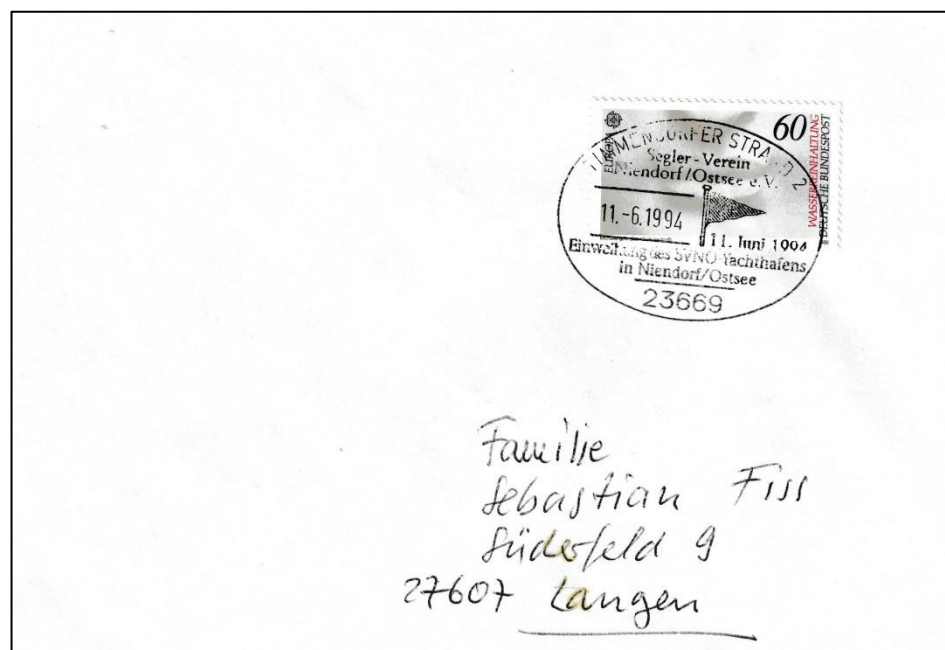 EUROPA
60
WASSERREINHALTUNG
DEUTSCHE BUNDESPOST
TIMMENDORFER STRAND 2
Segler-Verein
Niendorf/Ostsee e.V.
11.-6.1994
11. Juni 1994
Einweihung des SVNO-Yachthafens
in Niendorf/Ostsee
23669
Familie
Sebastian Fiss
Süderfeld 9
27607 Langen